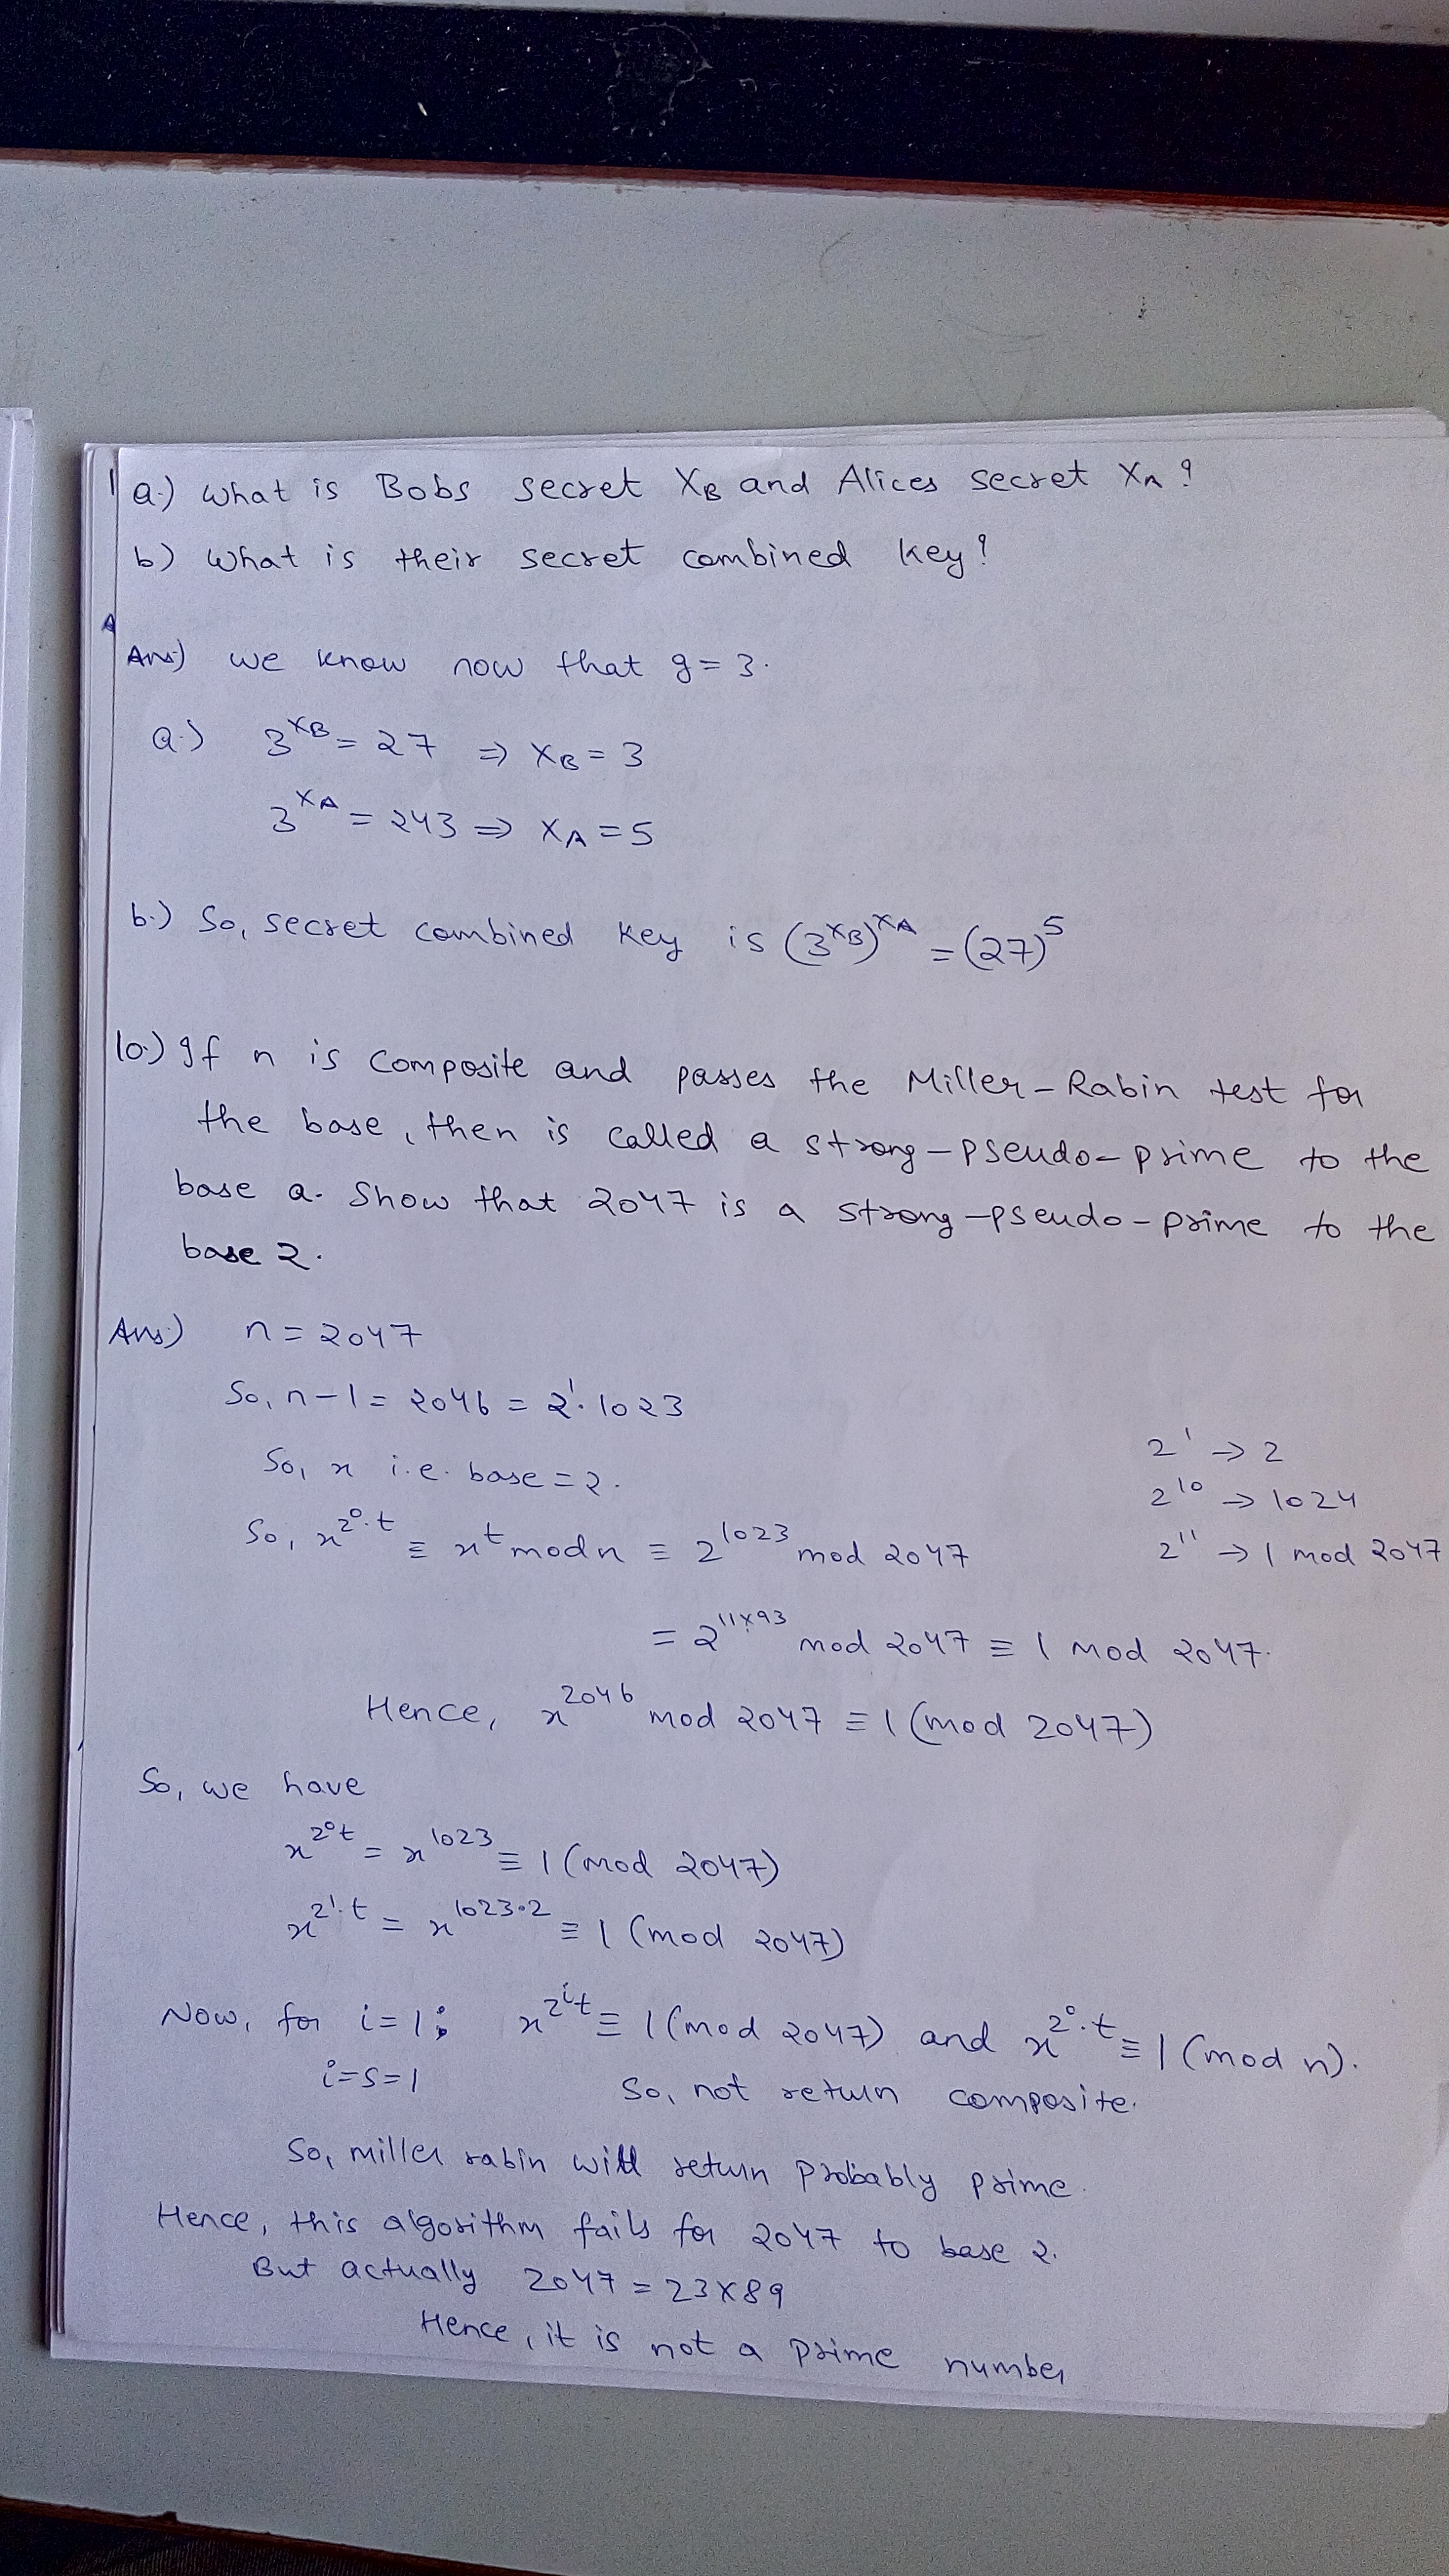 a.) What is Bobs secret X_B and Alices secret X_A ?
b) What is their secret combined key?
Ans) we know now that g = 3.
a.) 3^{X_B} = 27 ⇒ X_B = 3
3^{X_A} = 243 ⇒ X_A = 5
b.) So, secret combined key is (3^{X_B})^{X_A} = (27)^5
10.) If n is composite and passes the Miller-Rabin test for
the base, then is called a strong-pseudo-prime to the
base a. Show that 2047 is a strong-pseudo-prime to the
base 2.
Ans) n = 2047
So, n-1 = 2046 = 2^1. 1023
So, x i.e. base = 2.
So, x^{2^0.t} ≡ x^t mod n ≡ 2^{1023} mod 2047
= 2^{11×93} mod 2047 ≡ 1 mod 2047.
2^1 → 2
2^{10} → 1024
2^{11} → 1 mod 2047
Hence, x^{2046} mod 2047 ≡ 1 (mod 2047)
So, we have
x^{2^0 t} = x^{1023} ≡ 1 (mod 2047)
x^{2^1.t} = x^{1023.2} ≡ 1 (mod 2047)
Now, for i=1; x^{2^i t} ≡ 1 (mod 2047) and x^{2^0.t} ≡ 1 (mod n).
i=s=1 So, not return composite.
So, miller rabin will return probably prime.
Hence, this algorithm fails for 2047 to base 2.
But actually 2047 = 23×89
Hence, it is not a prime number